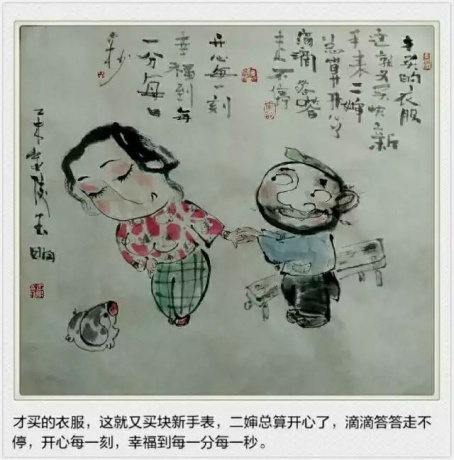 才买的衣服
这就又买块新
手表二婶
总算开心了
滴滴答答
走不停
开心每一刻
幸福到每
一分每一
秒
才买的衣服，这就又买块新手表，二婶总算开心了，滴滴答答走不
停，开心每一刻，幸福到每一分每一秒。